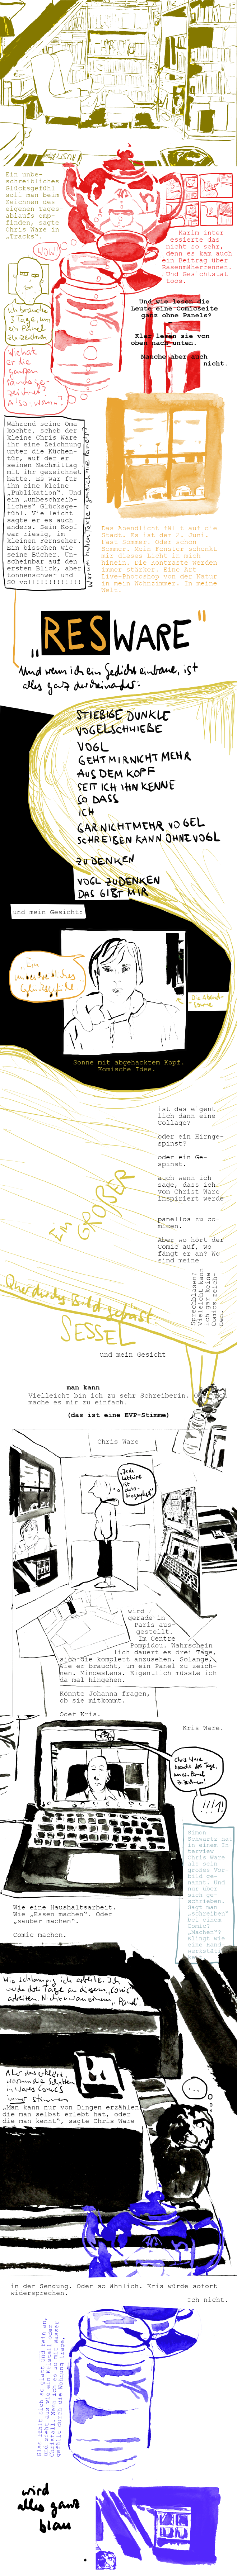 Ein unbe-
schreibliches
Glücksgefühl
soll man beim
Zeichnen des
eigenen Tages-
ablaufs emp-
finden, sagte
Chris Ware in
„Tracks“.
WOW!
Karim inter-
essierte das
nicht so sehr,
denn es kam auch
ein Beitrag über
Rasenmäherrennen.
Und Gesichtstat
toos.
Ich brauche
3 Tage, um
ein Panel
zu zeichnen
Wie hat
er die
ganzen
Bände ge-
zeichnet?
Also: wann?
Und wie lesen die
Leute eine Comicseite
ganz ohne Panels?
Klar lesen sie von
oben nach unten.
Manche aber auch
nicht.
Während seine Oma
kochte, schob der
kleine Chris Ware
ihr eine Zeichnung
unter die Küchen-
tür, auf der er
seinen Nachmittag
mit ihr gezeichnet
hatte. Es war für
ihn eine kleine
„Publikation“. Und
ein „unbeschreib-
liches“ Glücksge-
fühl. Vielleicht
sagte er es auch
anders. Sein Kopf
war riesig, im
kleinen Fernseher.
Ein bisschen wie
seine Bücher. Un-
scheinbar auf den
ersten Blick, aber
tonnenschwer und
so voll!!!!!!!!!!!
Das Abendlicht fällt auf die
Stadt. Es ist der 2. Juni.
Fast Sommer. Oder schon
Sommer. Mein Fenster schenkt
mir dieses Licht in mich
hinein. Die Kontraste werden
immer stärker. Eine Art
Live-Photoshop von der Natur
in mein Wohnzimmer. In meine
Welt.
„RESWARE“
Und wenn ich ein Gedicht einbaue, ist
alles ganz durcheinander:
STIEBIGE DUNKLE
VOGELSCHWIEBE
VOGL
GEHT MIR NICHT MEHR
AUS DEM KOPF
SEIT ICH IHN KENNE
SO DASS
ICH
GAR NICHT MEHR VOGEL
SCHREIBEN KANN OHNE VOGL
ZU DENKEN
VOGL ZU DENKEN
DAS GIBT MIR
und mein Gesicht:
Ein
unbeschreibliches
Glücksgefühl
Die Abend-
sonne
Sonne mit abgehacktem Kopf.
Komische Idee.
ist das eigent-
lich dann eine
Collage?
oder ein Hirnge-
spinst?
oder ein Ge-
spinst.
auch wenn ich
sage, dass ich
von Christ Ware
inspiriert werde
panellos zu co-
micen.
Aber wo hört der
Comic auf, wo
fängt er an? Wo
sind meine
Sprechblasen?
Vielleicht kann
ich gar keine
Comics zeich-
nen.
Ein
GROßER
Quer durchs Bild
SESSEL
und mein Gesicht
man kann
Vielleicht bin ich zu sehr Schreiberin.
mache es mir zu einfach.
(das ist eine EVP-Stimme)
Chris Ware
wird
gerade in
Paris aus-
gestellt.
Im Centre
Pompidou. Wahrschein
lich dauert es drei Tage,
sich die komplett anzusehen. Solange,
wie er braucht, um ein Panel zu zeich-
nen. Mindestens. Eigentlich müsste ich
da mal hingehen.
Könnte Johanna fragen,
ob sie mitkommt.
Oder Kris.
Kris Ware.
Chris Ware
braucht drei Tage,
um ein Panel
zu zeichnen!
Simon
Schwartz hat
in einem In-
terview
Chris Ware
als sein
großes Vor-
bild ge-
nannt. Und
nur über
sich ge-
schrieben.
Sagt man
„schreiben“
bei einem
Comic?
„Machen“?
Klingt wie
eine Hand-
werkstätt
Wie eine Haushaltsarbeit.
Wie „Essen machen“. Oder
„sauber machen“.
Comic machen.
Wie schlampig ich arbeite. Ich
würde drei Tage an diesem „Comic“
arbeiten. Nicht nur an einem „Panel“.
Aber das erklärt,
warum die Schatten
in Wares Comics
immer stimmen
...
„Man kann nur von Dingen erzählen,
die man selbst erlebt hat, oder
die man kennt“, sagte Chris Ware
in der Sendung. Oder so ähnlich. Kris würde sofort
widersprechen.
Ich nicht.
Glas fühlt sich so glatt und fein an,
und sieht aus wie ein Kristall oder
Christall. Wenn ich es so mit Wasser
gefüllt durch die Wohnung trage,
wird
alles ganz
blau
.